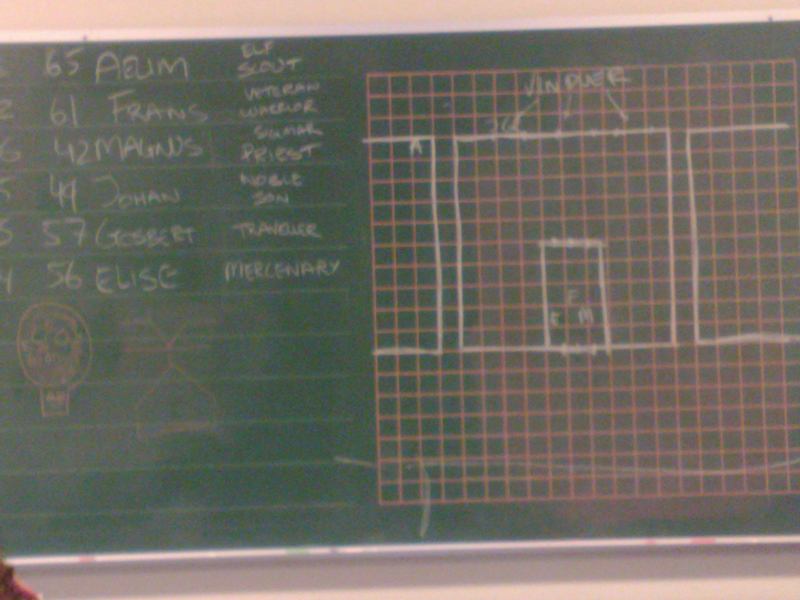 65 AELIM ELF SCOUT
2 61 FRANS VETERAN WARRIOR
42 MAGNUS SIGMAR PRIEST
5 49 JOHAN NOBLE SON
57 GOSBERT TRAVELLER
4 56 ELISE MERCENARY
VINDUER
A
F
E M